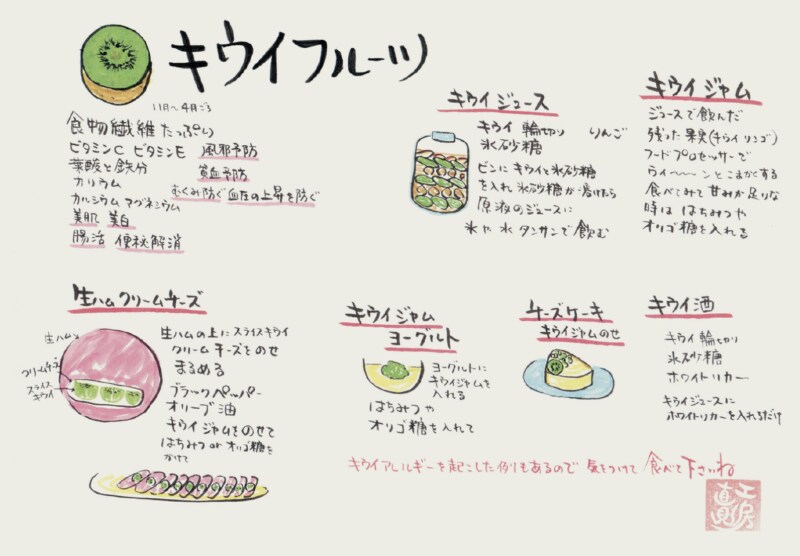 キウイフルーツ
11月〜4月ごろ
食物繊維たっぷり
ビタミンC ビタミンE 風邪予防
葉酸と鉄分 貧血予防
カリウム むくみ防ぐ 血圧の上昇を防ぐ
カルシウム マグネシウム
美肌 美白
腸活 便秘解消
キウイジュース
キウイ輪切り りんご
氷砂糖
ビンにキウイと氷砂糖
を入れ 氷砂糖が溶けたら
原液のジュースに
氷や水 タンサンで飲む
キウイジャム
ジュースで飲んだ
残った果実(キウイリンゴ)
フードプロセッサーで
ウィ〜〜ンとこまかくする
食べてみて甘みが足りな
時は はちみつや
オリゴ糖を入れる
生ハムクリームチーズ
生ハム
クリームチーズ
スライス
キウイ
生ハムの上にスライスキウイ
クリームチーズをのせ
まるめる
ブラックペッパー
オリーブ油
キウイジャムをのせて
はちみつorオリゴ糖を
かけて
キウイジャム
ヨーグルト
ヨーグルトに
キウイジャムを
入れる
はちみつや
オリゴ糖を入れて
チーズケーキ
キウイジャムのせ
キウイ酒
キウイ輪切り
氷砂糖
ホワイトリカー
キウイジュースに
ホワイトリカーを入れるだけ
キウイアレルギーを起こした例もあるので 気をつけて 食べて下さいね
工房